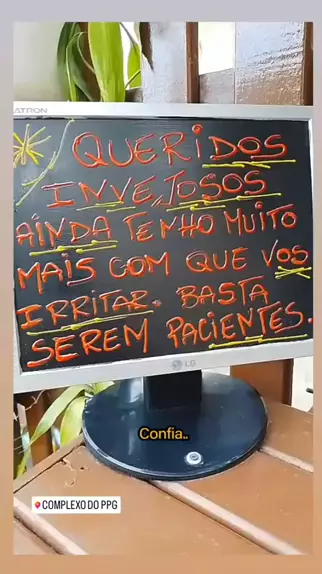 ATRON
QUERIDOS
INVEJOSOS
AÍNDA TENHO MUITO
MAIS COM QUE VOS
IRRITAR. BASTA
SEREM PACIENTES.
LG
Confia..
COMPLEXO DO PPG